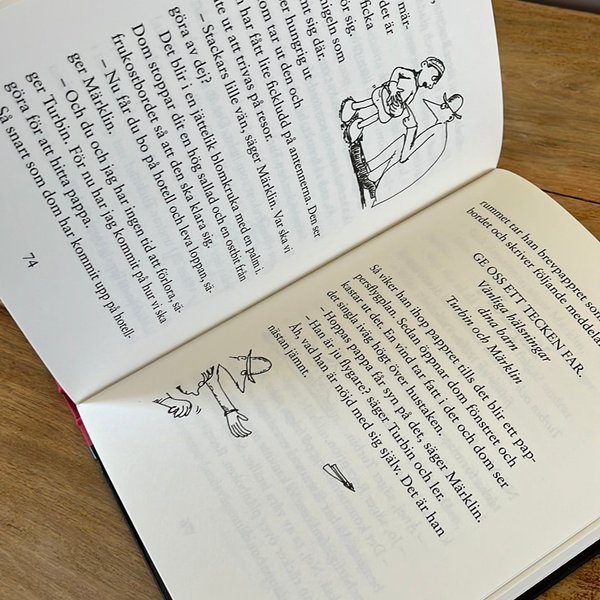 mär-
det är
ficka
för sig.
igeln som
tar ur den och
ver hungrig ut
amt sig där.
n har fått lite fickludd på antennerna. Den ser
te ut att trivas på resor.
– Stackars lille vän, säger Märklin. Var ska vi
göra av dej?
Det blir i en jättelik blomkruka med en palm i.
Dom stoppar dit en hög sallad och en ostbit från
frukostbordet så att den ska klara sig.
– Nu får du bo på hotell och leva loppan, sä-
ger Märklin.
– Och du och jag har ingen tid att förlora, sä-
ger Turbin. För nu har jag kommit på hur vi ska
göra för att hitta pappa.
Så snart som dom har kommit upp på hotell-
74
rummet tar han brevpappret som
bordet och skriver följande meddela
GE OSS ETT TECKEN FAR.
Vänliga hälsningar
dina barn
Turbin och Märklin
Så viker han ihop pappret tills det blir ett pap-
persflygplan. Sedan öppnar dom fönstret och
kastar ut det. En vind tar fatt i det och dom ser
det singla iväg högt över hustaken.
– Hoppas pappa får syn på det, säger Märklin.
– Han är ju flygare? säger Turbin och ler.
Åh, vad han är nöjd med sig själv. Det är han
nästan jämnt.